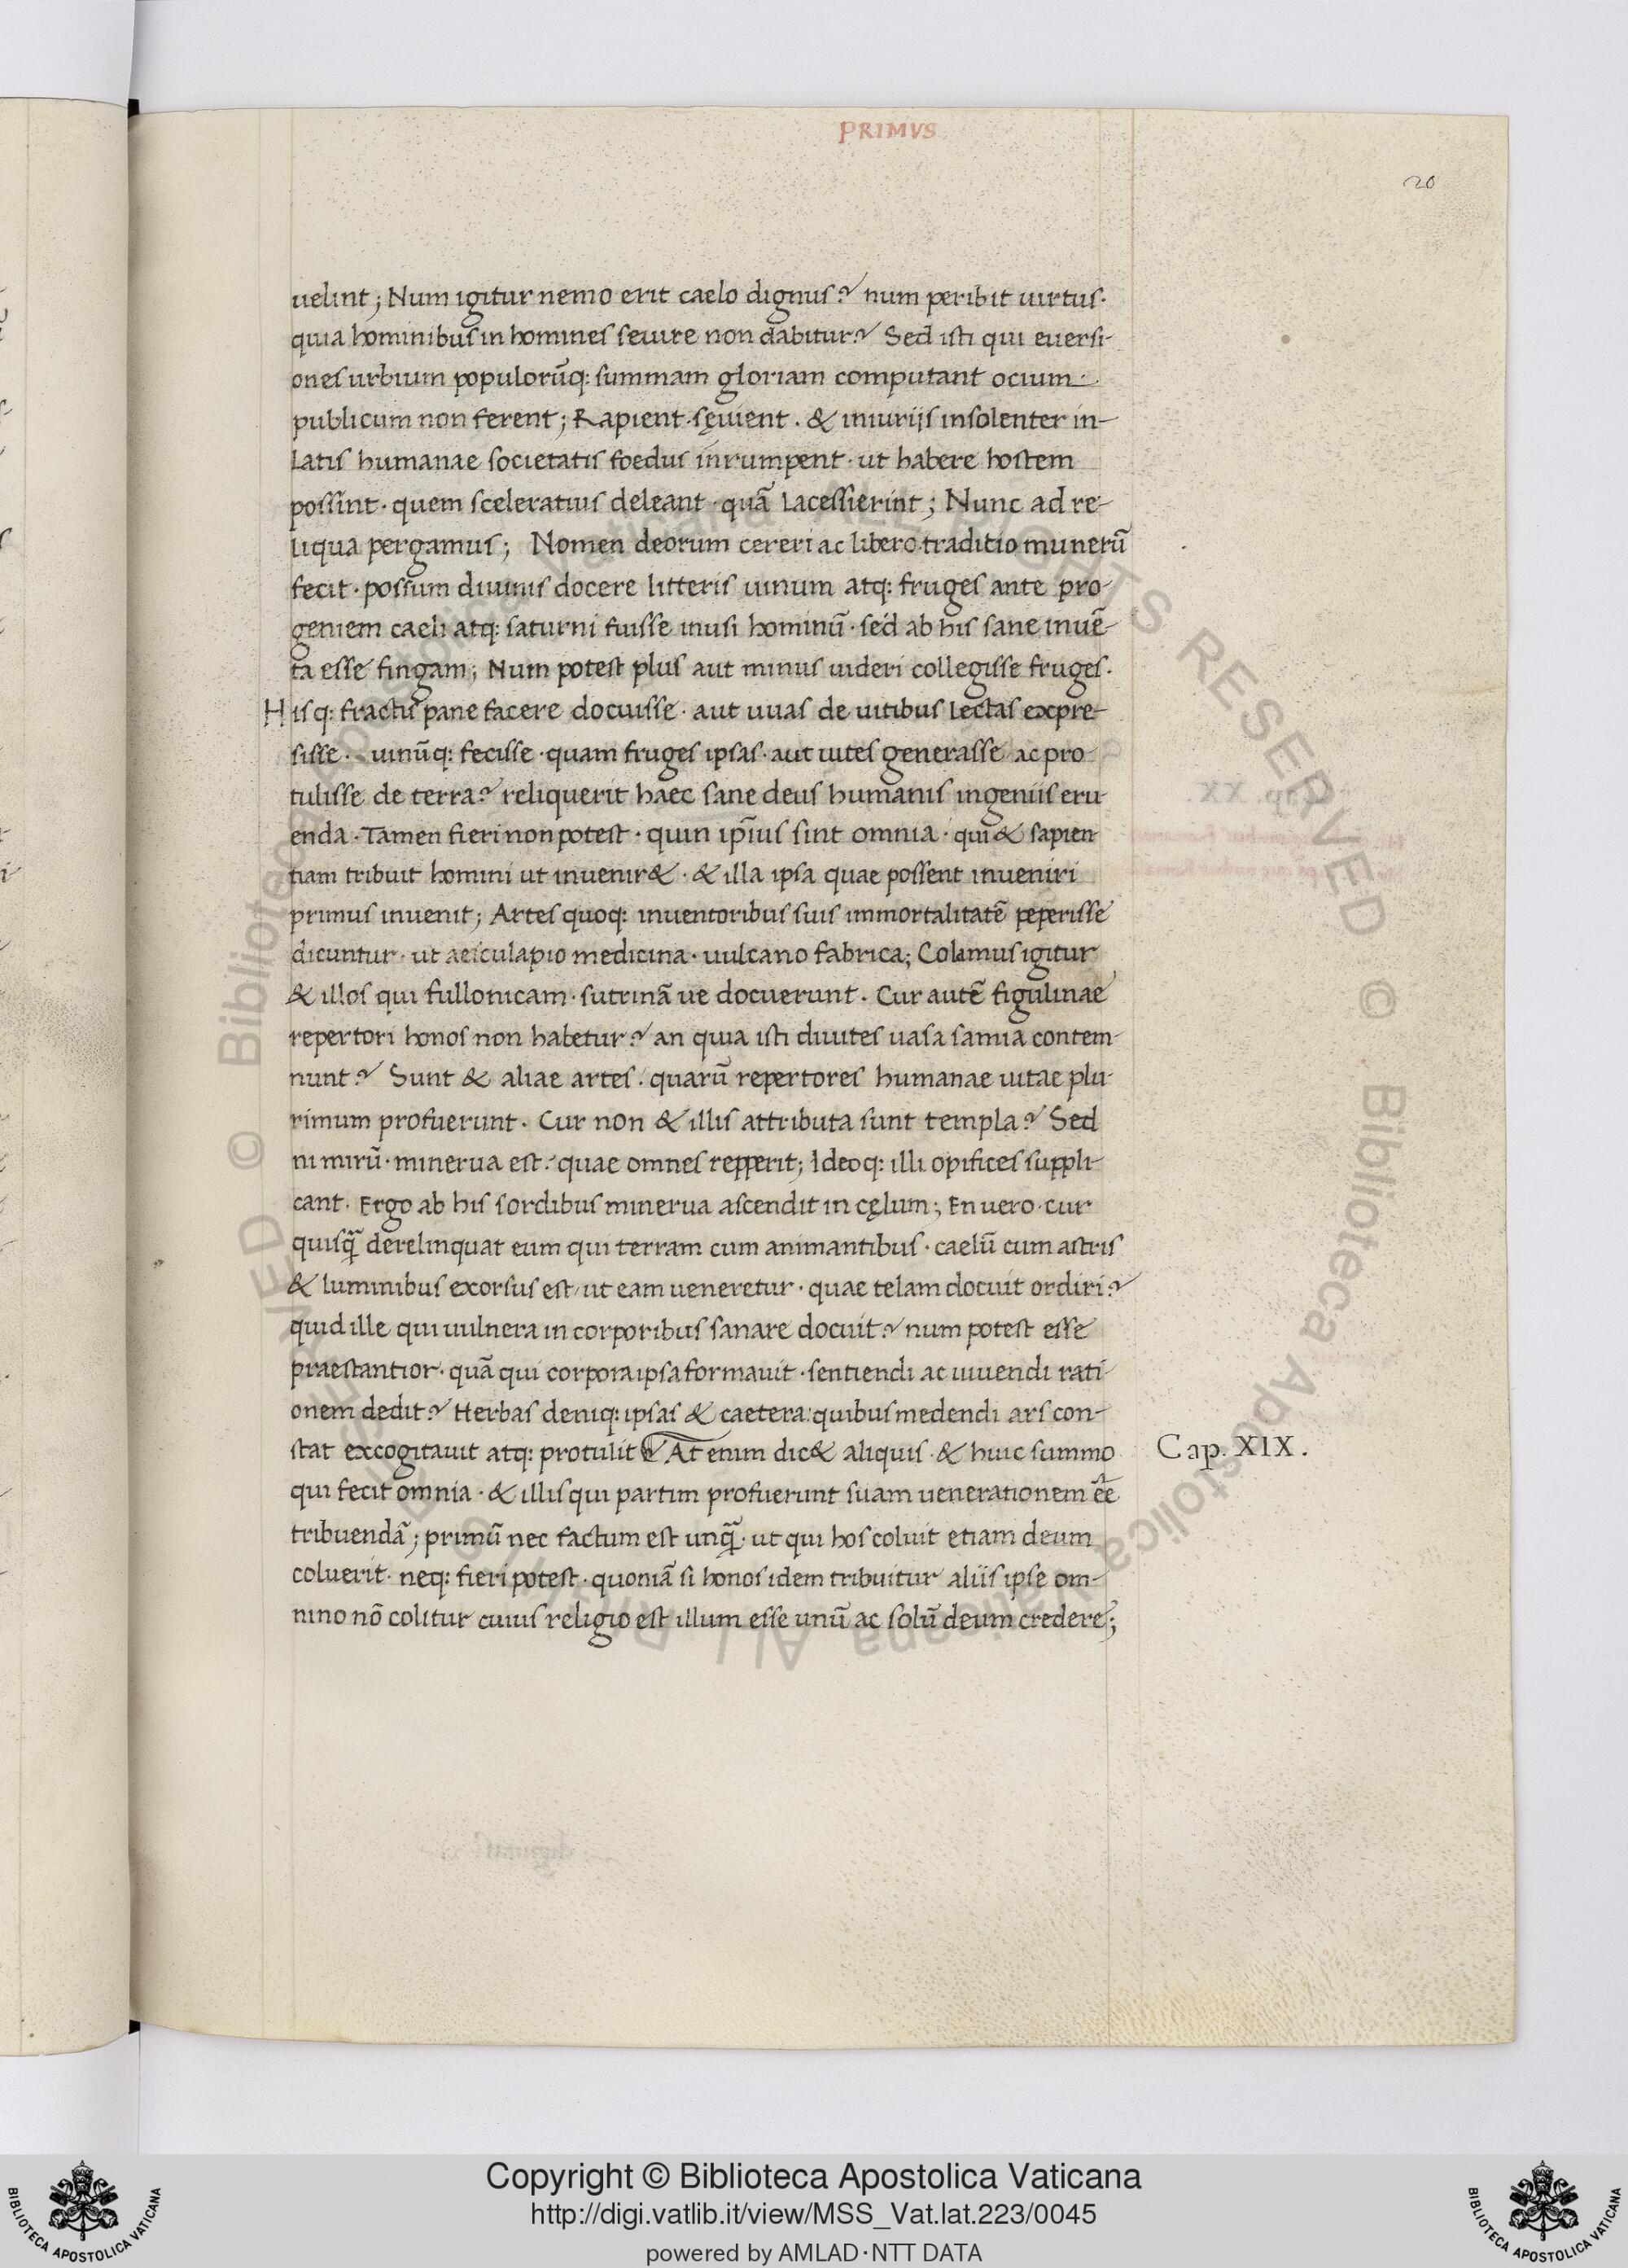 PRIMVS
20
uelint; Num igitur nemo erit caelo dignus? num peribit uirtus·
quia hominibus in homines seuire non dabitur? Sed isti qui euersi-
ones urbium populorūq: summam gloriam computant ocium·
publicum non ferent; Rapient· sęuient· & iniurijs insolenter in-
latis humanae societatis foedus inrumpent· ut habere hostem
possint· quem sceleratius deleant· quā lacessierint; Nunc ad re-
liqua pergamus; Nomen deorum cereri ac libero traditio munerū
fecit· possum diuinis docere litteris uinum atq: fruges ante pro-
geniem caeli atq: saturni fuisse inusi hominū· sed ab his sane inuē-
ta esse fingam; Num potest plus aut minus uideri collegisse fruges·
Hisq: fractis pane facere docuisse· aut uuas de uitibus lectas expre-
sisse· uinūq: fecisse· quam fruges ipsas· aut uites generasse ac pro
tulisse de terra? reliquerit haec sane deus humanis ingeniis eru
enda· Tamen fieri non potest· quin ip̄ius sint omnia· qui & sapien
tiam tribuit homini ut inuenir&· & illa ipsa quae possent inueniri
primus inuenit; Artes quoq: inuentoribus suis immortalitatē peperisse
dicuntur· ut aesculapio medicina· uulcano fabrica; Colamus igitur
& illos qui fullonicam· sutrinā ue docuerunt· Cur autē figulinae
repertori honos non habetur? an quia isti diuites uasa samia contem-
nunt? Sunt & aliae artes· quarū repertores humanae uitae plu-
rimum profuerunt· Cur non & illis attributa sunt templa? Sed
nimirū· minerua est· quae omnes repperit; Ideoq: illi opifices suppli-
cant· Ergo ab his sordibus minerua ascendit in cęlum; En uero· cur
quisq̄ derelinquat eum qui terram cum animantibus· caelū cum astris
& luminibus exorsus est, ut eam ueneretur· quae telam docuit ordiri?
quid ille qui uulnera in corporibus sanare docuit? num potest esse
praestantior· quā qui corpora ipsa formauit· sentiendi ac uiuendi rati-
onem dedit? Herbas deniq: ipsas & caetera: quibus medendi ars con-
stat excogitauit atq: protulit? At enim dic& aliquis· & huic summo
Cap. XIX.
qui fecit omnia· & illis qui partim profuerunt suam uenerationem ēē
tribuendā; primū nec factum est unq̄· ut qui hos coluit etiam deum
coluerit· neq: fieri potest· quoniā si honos idem tribuitur aliis ipse om-
nino nō colitur cuius religio est illum esse unū ac solū deum credere;
Copyright © Biblioteca Apostolica Vaticana
http://digi.vatlib.it/view/MSS_Vat.lat.223/0045
powered by AMLAD·NTT DATA